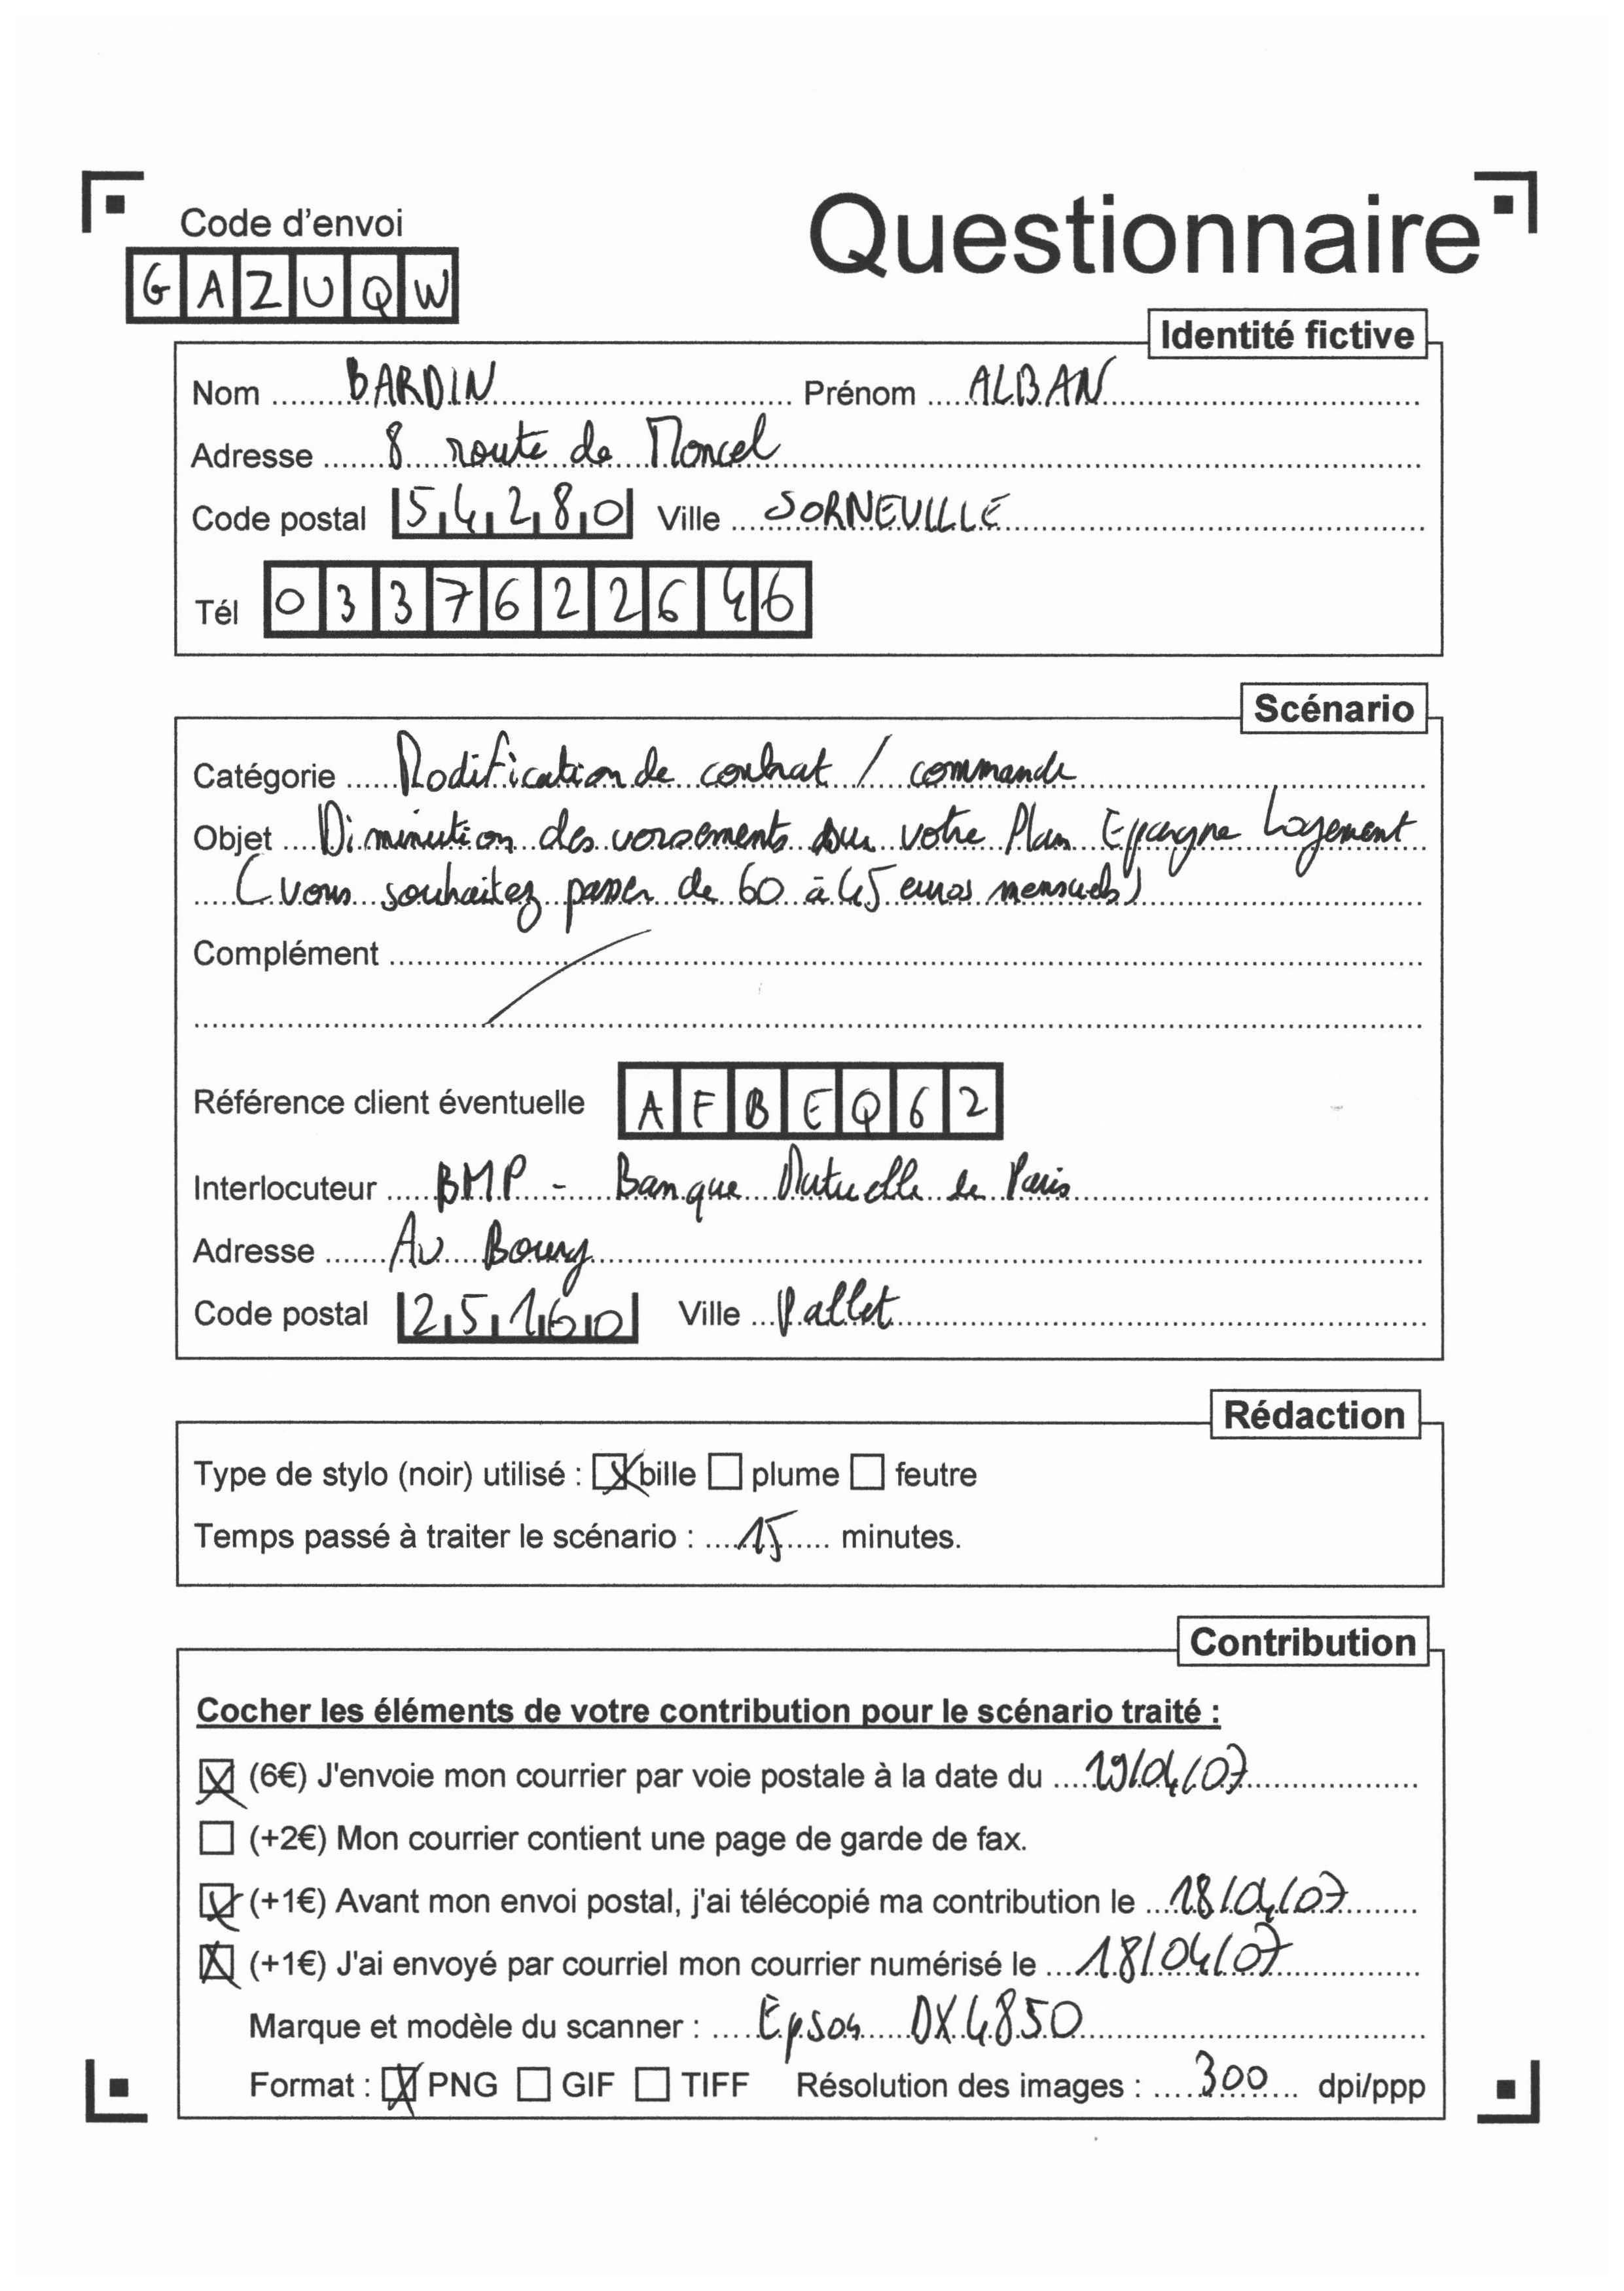 Code d'envoi
GAZUQW
Questionnaire
Identité fictive
Nom BARDIN Prénom ALBAN
Adresse 8 route de Moncel
Code postal 54280 Ville SORNEVILLE
Tél 0337622646
Scénario
Catégorie Modification de contrat / commande
Objet Diminution des versements sur votre Plan Epargne Logement
(vous souhaitez passer de 60 à 45 euros mensuels)
Complément /
Référence client éventuelle AFBEQ62
Interlocuteur BMP - Banque Mutuelle de Paris
Adresse Au Bourg
Code postal 25160 Ville Vallet
Rédaction
Type de stylo (noir) utilisé : ☒ bille ☐ plume ☐ feutre
Temps passé à traiter le scénario : 15 minutes.
Contribution
Cocher les éléments de votre contribution pour le scénario traité :
☒ (6€) J'envoie mon courrier par voie postale à la date du 19/04/07
☐ (+2€) Mon courrier contient une page de garde de fax.
☒ (+1€) Avant mon envoi postal, j'ai télécopié ma contribution le 18/04/07
☒ (+1€) J'ai envoyé par courriel mon courrier numérisé le 18/04/07
Marque et modèle du scanner : Epson DX4850
Format : ☒ PNG ☐ GIF ☐ TIFF Résolution des images : 300 dpi/ppp